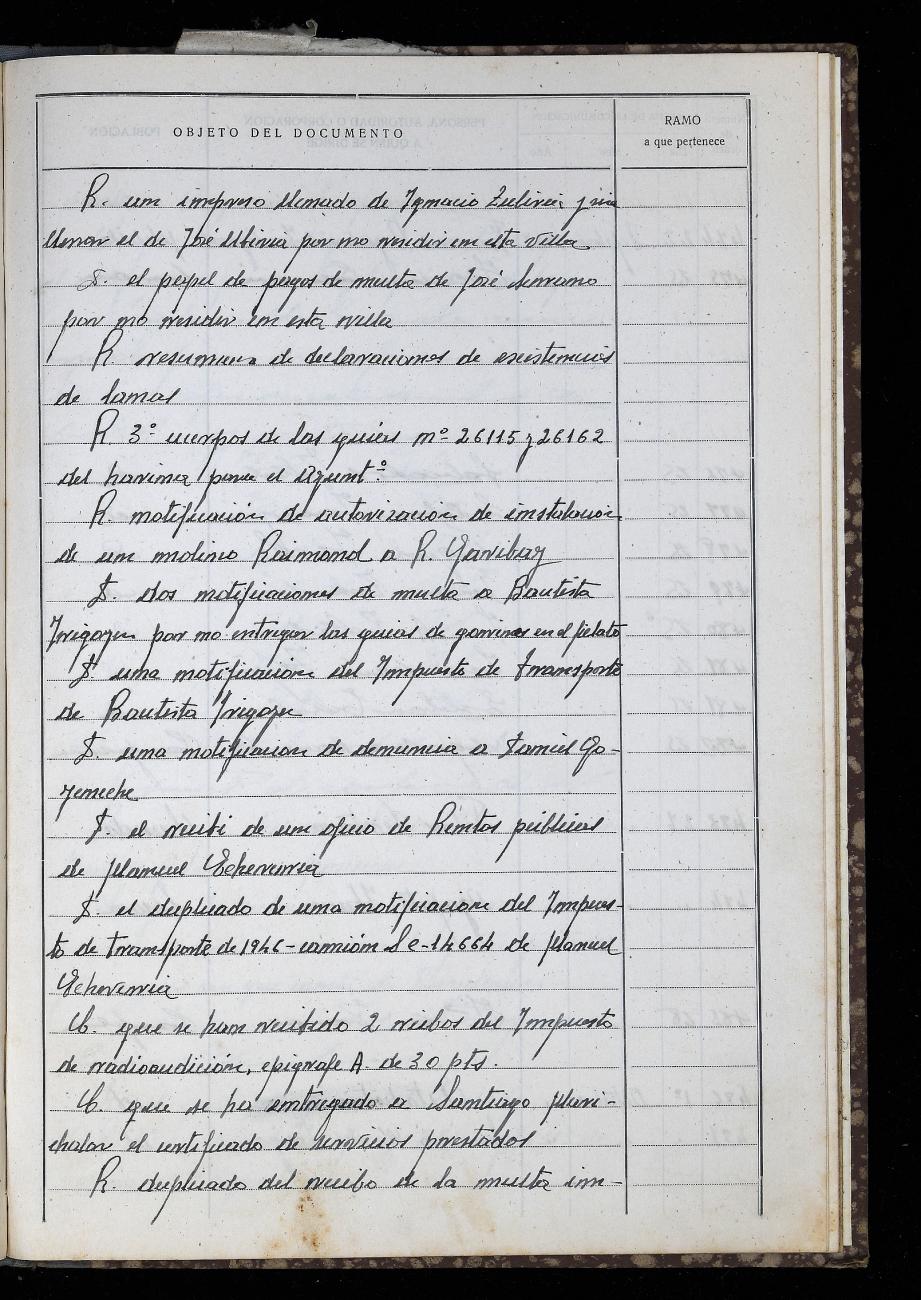 OBJETO DEL DOCUMENTO
RAMO
a que pertenece
R. un impreso llenado de Ignacio Zubiria y sin
llenar el de José Ubiria por no residir en esta villa
D. el papel de pagos de multa de José Serrano
por no residir en esta villa
R resumenes de declaraciones de existencias
de lanas
R 3º cuerpos de las guias nº 26115 y 26162
del harina para el Ayuntº
R. notificación de autorización de instalación
de un molino Raimond a R. Garibay
D. dos notificaciones de multa a Bautista
Yrigoyen por no entregar las guias de gorrinos en el fielato
D. una notificación del Impuesto de transporte
de Bautista Yrigoyen
D. una notificacion de denuncia a Daniel Go-
yeneche
D. el recibi de un oficio de Rentas públicas
de Manuel Echeverria
D. el duplicado de una notificacion del Impues-
to de transporte de 1946 - camión S e - 14664 de Manuel
Echeverria
C. que se han recibido 2 recibos del Impuesto
de radioaudición, epigrafe A. de 30 pts.
C. que se ha entregado a Santiago Mari-
chalar el certificado de servicios prestados
R. duplicado del recibo de la multa im-